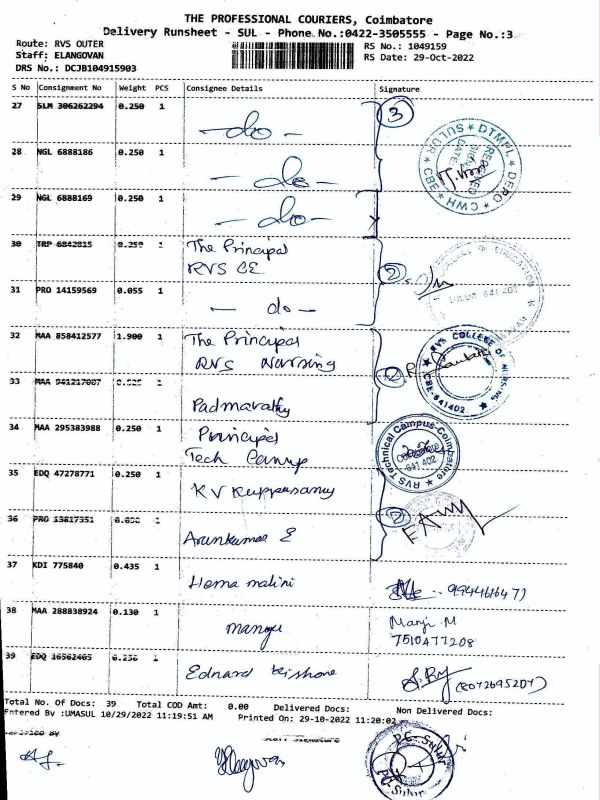 THE PROFESSIONAL COURIERS, Coimbatore
Delivery Runsheet - SUL - Phone No.:0422-3505555 - Page No.:3
Route: RVS OUTER RS No.: 1049159
Staff: ELANGOVAN RS Date: 29-Oct-2022
DRS No.: DCJB104915903
S No Consignment No Weight PCS Consignee Details Signature
27 SLM 306262294 0.250 1 - do - 3
28 NGL 6888186 0.250 1 - do -
29 NGL 6888169 0.250 1 - do -
30 TRP 6842815 0.250 1 The Principal
RVS CE 2
31 PRO 14159569 0.055 1 - do -
32 MAA 858412577 1.900 1 The Principal
RVS Nursing
33 MAA 941217007 1 Padmavathy
34 MAA 295383988 0.250 1 Principal
Tech Camp
35 EDQ 47278771 0.250 1 KV Kuppusamy
36 PRO 15817351 1 Arunkumar E
37 KDI 775840 0.435 1 Hema malini
38 MAA 288838924 0.130 1 manju Manju M
7510477208
39 EDQ 16562405 0.250 1 Ednard Kishore
Total No. Of Docs: 39 Total COD Amt: 0.00 Delivered Docs: Non Delivered Docs:
Entered By :UMASUL 10/29/2022 11:19:51 AM Printed On: 29-10-2022 11:20:02
DTMPL DEPO * CWH * CBE * SULUR
RECEIVED
DATE
RVS COLLEGE OF NURSING
CBE-641402
RVS Technical Campus-Coimbatore
641 402